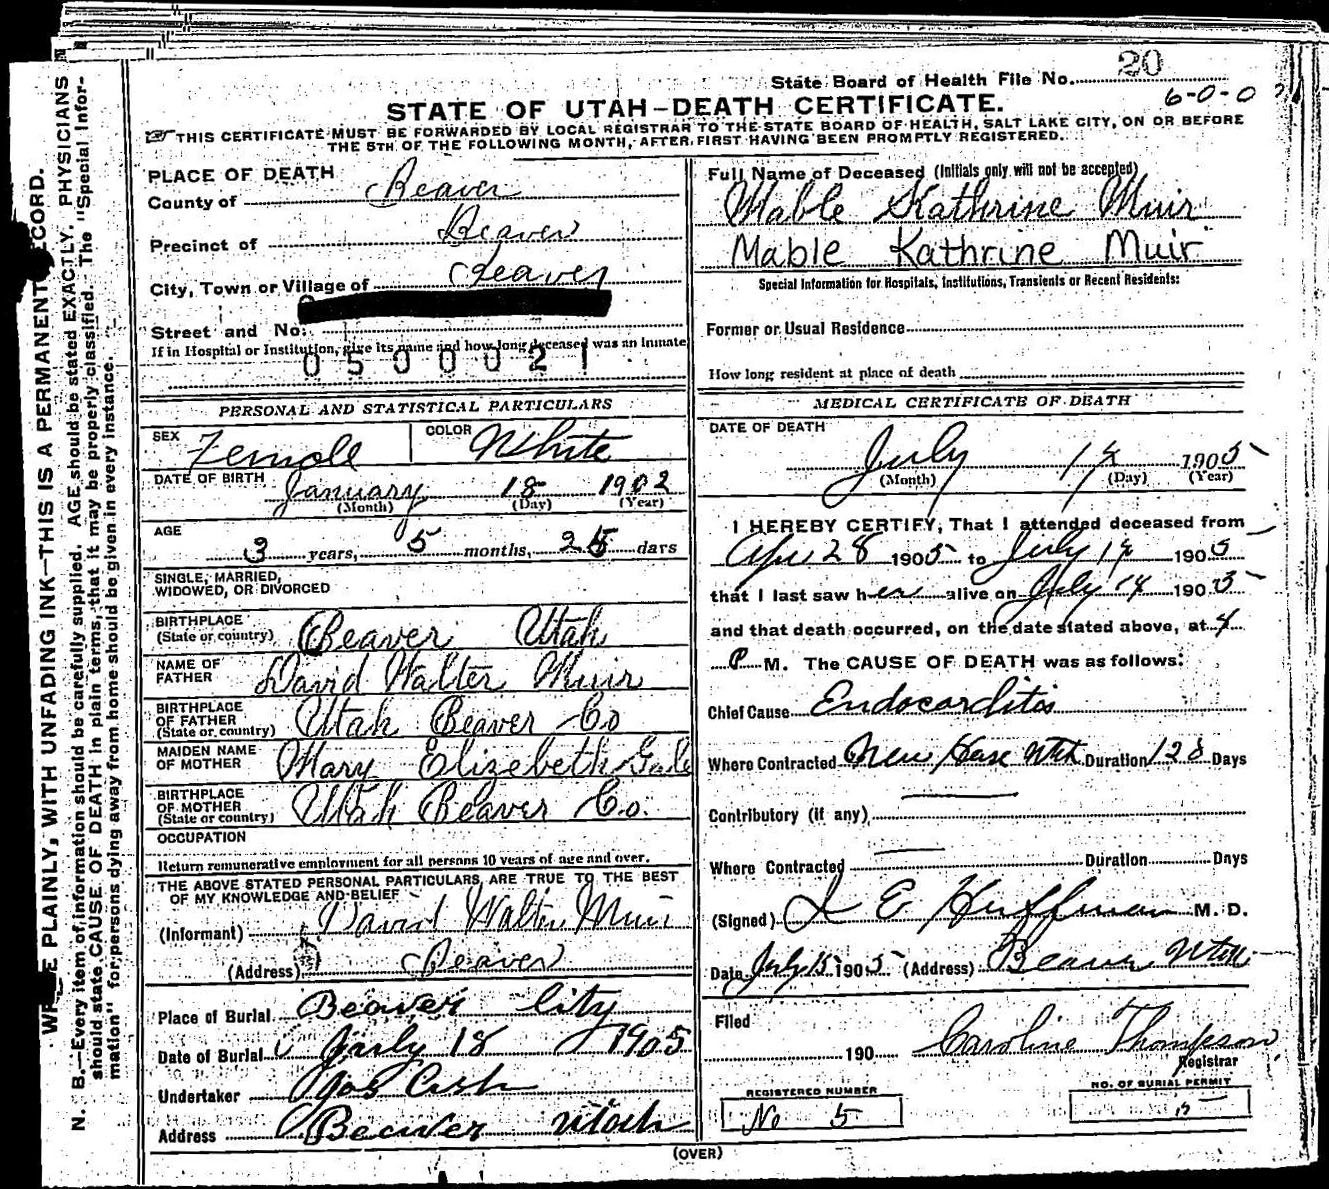 State Board of Health File No. 20
6-0-0
STATE OF UTAH-DEATH CERTIFICATE.
THIS CERTIFICATE MUST BE FORWARDED BY LOCAL REGISTRAR TO THE STATE BOARD OF HEALTH, SALT LAKE CITY, ON OR BEFORE
THE 5TH OF THE FOLLOWING MONTH, AFTER FIRST HAVING BEEN PROMPTLY REGISTERED.
WRITE PLAINLY, WITH UNFADING INK—THIS IS A PERMANENT RECORD.
N. B.—Every item of information should be carefully supplied. AGE should be stated EXACTLY. PHYSICIANS
should state CAUSE OF DEATH in plain terms, that it may be properly classified. The "Special Infor-
mation" for persons dying away from home should be given in every instance.
PLACE OF DEATH
County of Beaver
Precinct of Beaver
City, Town or Village of Beaver
Street and No.
If in Hospital or Institution, give its name and how long deceased was an Inmate
0500021
PERSONAL AND STATISTICAL PARTICULARS
SEX Female COLOR White
DATE OF BIRTH January 18 1902
(Month) (Day) (Year)
AGE
3 years, 5 months, 25 days
SINGLE, MARRIED,
WIDOWED, OR DIVORCED
BIRTHPLACE
(State or country) Beaver Utah
NAME OF
FATHER David Walter Muir
BIRTHPLACE
OF FATHER
(State or country) Utah Beaver Co
MAIDEN NAME
OF MOTHER Mary Elizebeth Gale
BIRTHPLACE
OF MOTHER
(State or country) Utah Beaver Co.
OCCUPATION
Return remunerative employment for all persons 10 years of age and over.
THE ABOVE STATED PERSONAL PARTICULARS ARE TRUE TO THE BEST
OF MY KNOWLEDGE AND BELIEF
(Informant) David Walter Muir
(Address) Beaver
Place of Burial Beaver City
Date of Burial July 18 1905
Undertaker Jos Cash
Address Beaver Utah
Full Name of Deceased (Initials only will not be accepted)
Mable Kathrine Muir
Mable Kathrine Muir
Special Information for Hospitals, Institutions, Transients or Recent Residents:
Former or Usual Residence
How long resident at place of death
MEDICAL CERTIFICATE OF DEATH
DATE OF DEATH
July 14 1905
(Month) (Day) (Year)
I HEREBY CERTIFY, That I attended deceased from
Apr 28 1905 to July 14 1905
that I last saw her alive on July 14 1905
and that death occurred, on the date stated above, at 4
P M. The CAUSE OF DEATH was as follows:
Chief Cause Endocarditis
Where Contracted New Utah Duration 128 Days
Contributory (if any)
Where Contracted Duration Days
(Signed) E Huffman M. D.
Date July 15 1905 (Address) Beaver Utah
Filed
190 Caroline Thompson
Registrar
REGISTERED NUMBER
No 5
NO. OF BURIAL PERMIT
(OVER)